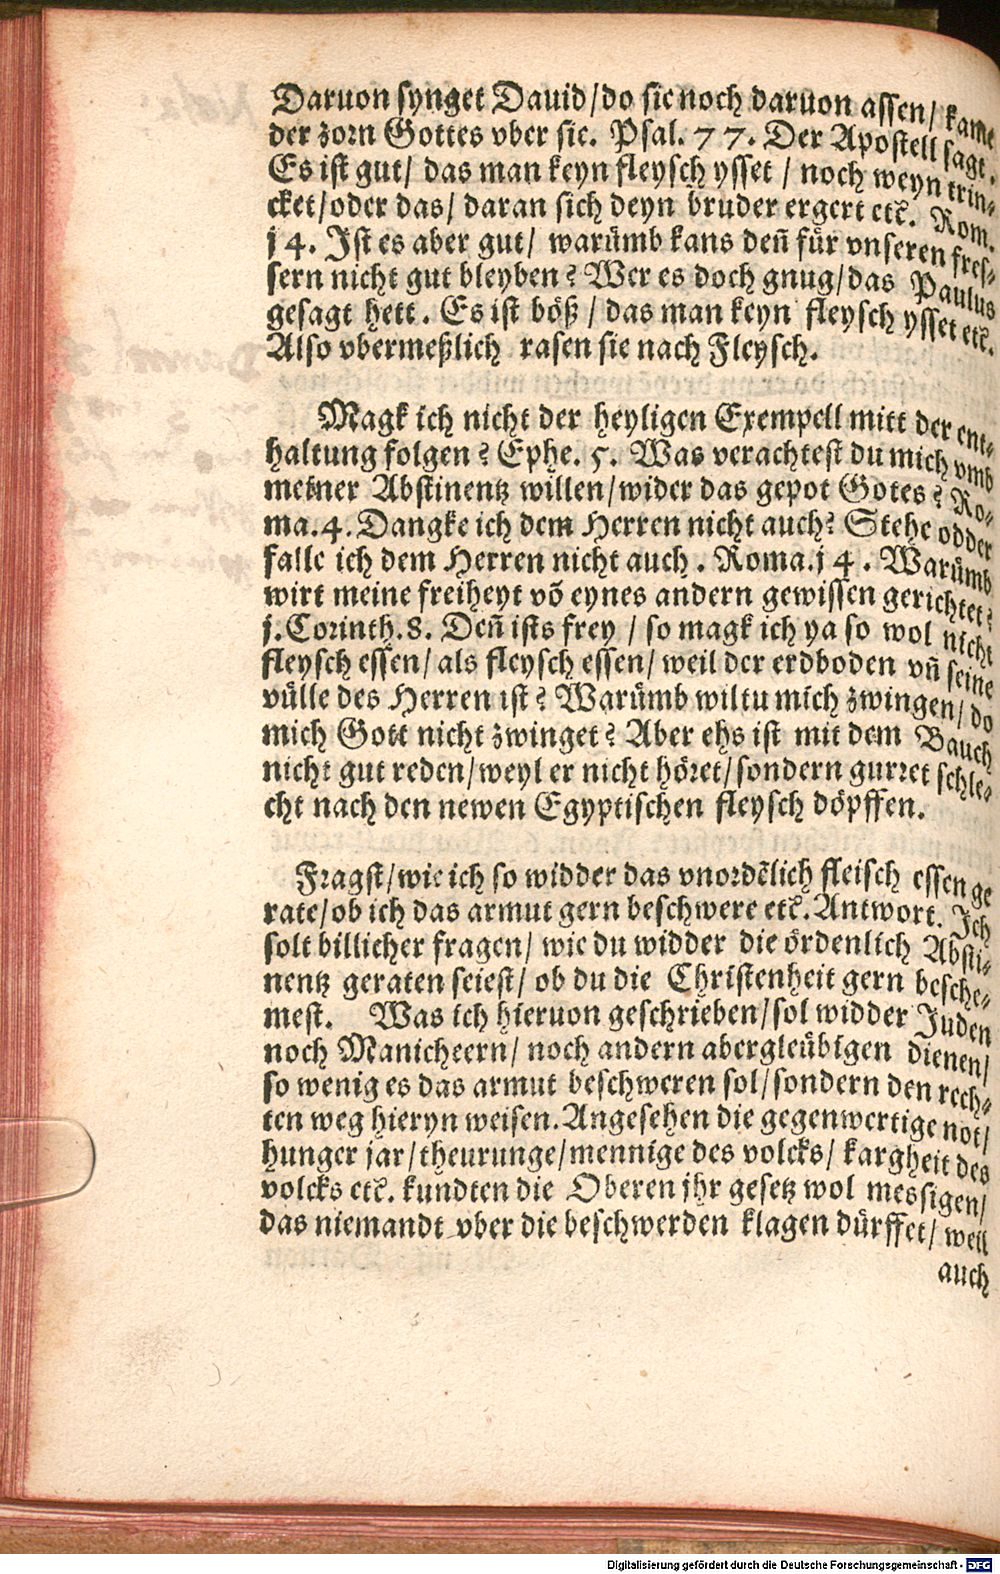 Daruon synget Dauid/do sie noch daruon assen/ kame
der zorn Gottes vber sie. Psal. 77. Der Apostell sagt.
Es ist gut/ das man keyn fleysch ysset / noch weyn trin⸗
cket/oder das/ daran sich deyn bruder ergert etc̄. Rom.
j4. Ist es aber gut/ warümb kans deñ für vnseren fres⸗
sern nicht gut bleyben? Wer es doch gnug/das Paulus
gesagt hett. Es ist böß / das man keyn fleysch ysset etc̄.
Also vbermeßlich rasen sie nach Fleysch.
Magk ich nicht der heyligen Exempell mitt der ent⸗
haltung folgen? Ephe. 5. Was verachtest du mich vmb
meiner Abstinentz willen/wider das gepot Gotes? Ro⸗
ma.4. Dangke ich dem Herren nicht auch? Stehe odder
falle ich dem Herren nicht auch. Roma.j4. Warümb
wirt meine freiheyt võ eynes andern gewissen gerichtet?
j.Corinth.8. Deñ ists frey / so magk ich ya so wol nicht
fleysch essen/ als fleysch essen/ weil der erdboden vñ seine
vülle des Herren ist? Warümb wiltu mich zwingen/do
mich Gott nicht zwinget? Aber ehs ist mit dem Bauch
nicht gut reden/weyl er nicht höret/sondern gurret schle⸗
cht nach den newen Egyptischen fleysch döpffen.
Fragst/wie ich so widder das vnordẽlich fleisch essen ge
rate/ob ich das armut gern beschwere etc̄. Antwort. Ich
solt billicher fragen/ wie du widder die ördenlich Absti⸗
nentz geraten seiest/ ob du die Christenheit gern besche⸗
mest. Was ich hieruon geschrieben/sol widder Juden
noch Manicheern/ noch andern abergleübigen dienen/
so wenig es das armut beschweren sol/sondern den rech⸗
ten weg hieryn weisen. Angesehen die gegenwertige not/
hunger jar/theurunge/mennige des volcks/ kargheit des
volcks etc̄. kundten die Oberen jhr gesetz wol messigen/
das niemandt vber die beschwerden klagen dürffet/ weil
auch
Digitalisierung gefördert durch die Deutsche Forschungsgemeinschaft - DFG